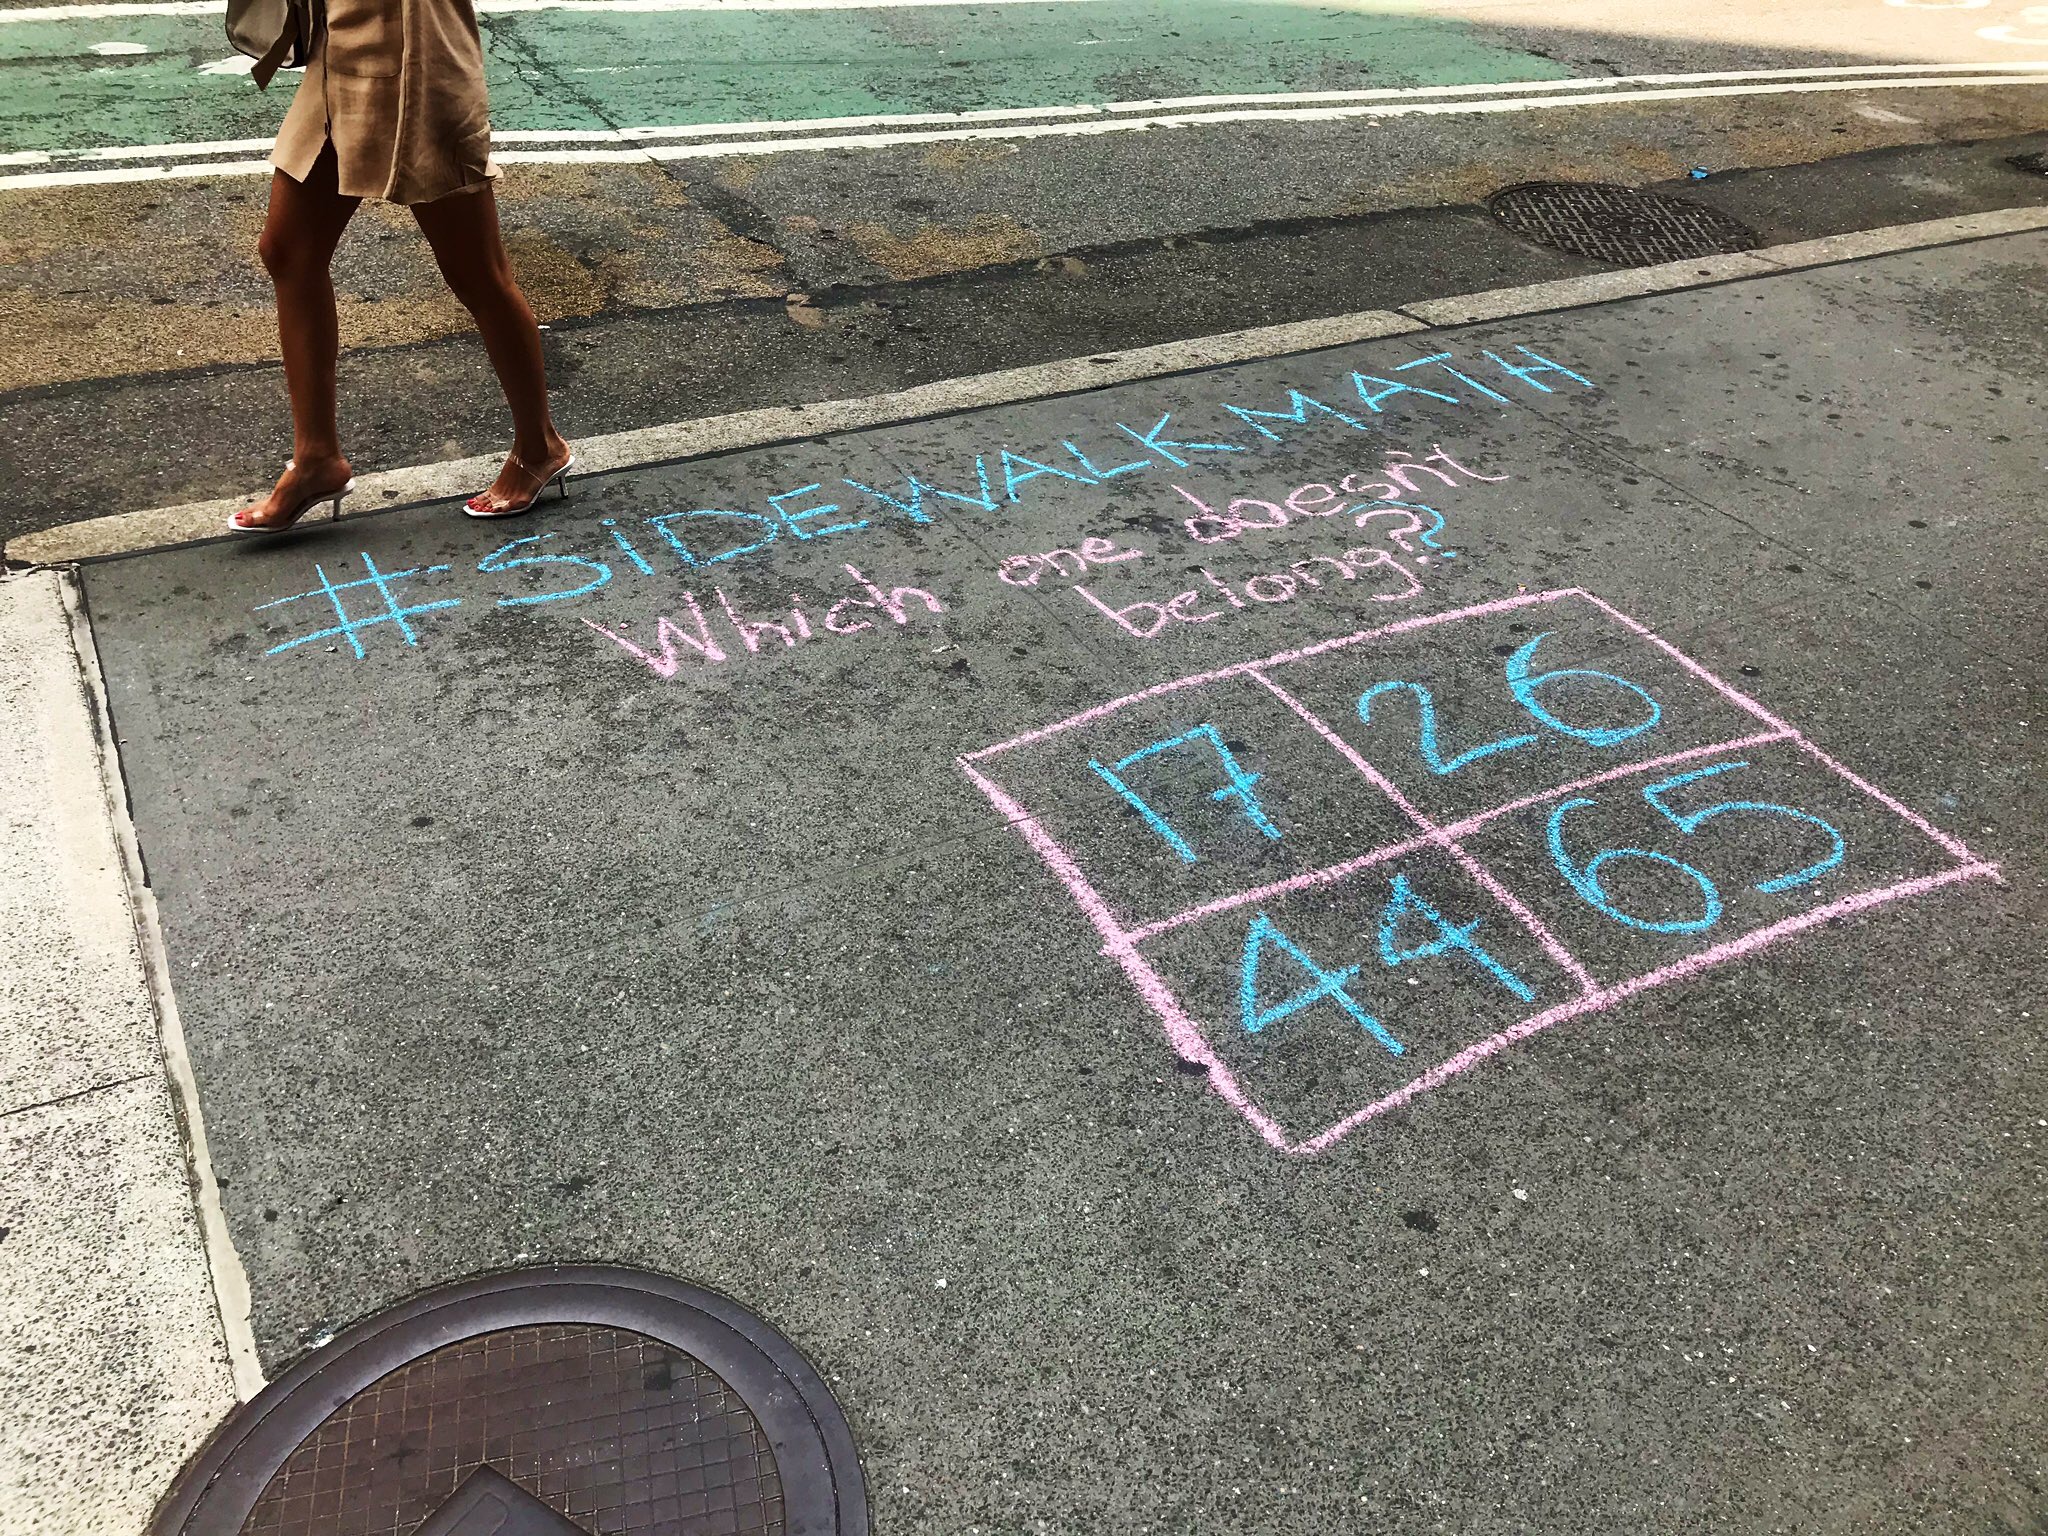 #SIDEWALKMATH
Which one doesn't
belong?
17 26
44 65